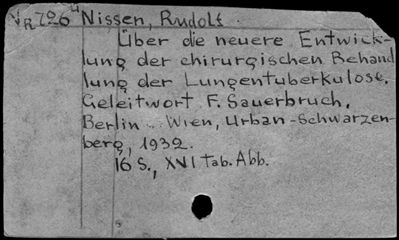 VR726⁴ Nissen, Rudolf.
Über die neuere Entwick-
lung der chirurgischen Behand
lung der Lungentuberkulose.
Geleitwort F. Sauerbruch,
Berlin - Wien, Urban-Schwarzen-
berg, 1932.
16 S., XVI Tab. Abb.